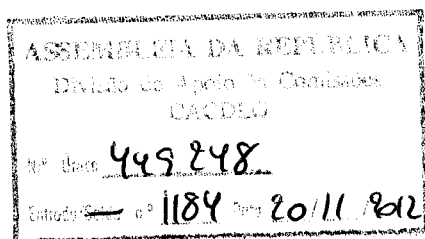 ASSEMBLEIA DA REPÚBLICA
Divisão de Apoio às Comissões
CACDLG
N.º Único 449248
Entrada/Saída n.º 1184 Data 20/11/2012